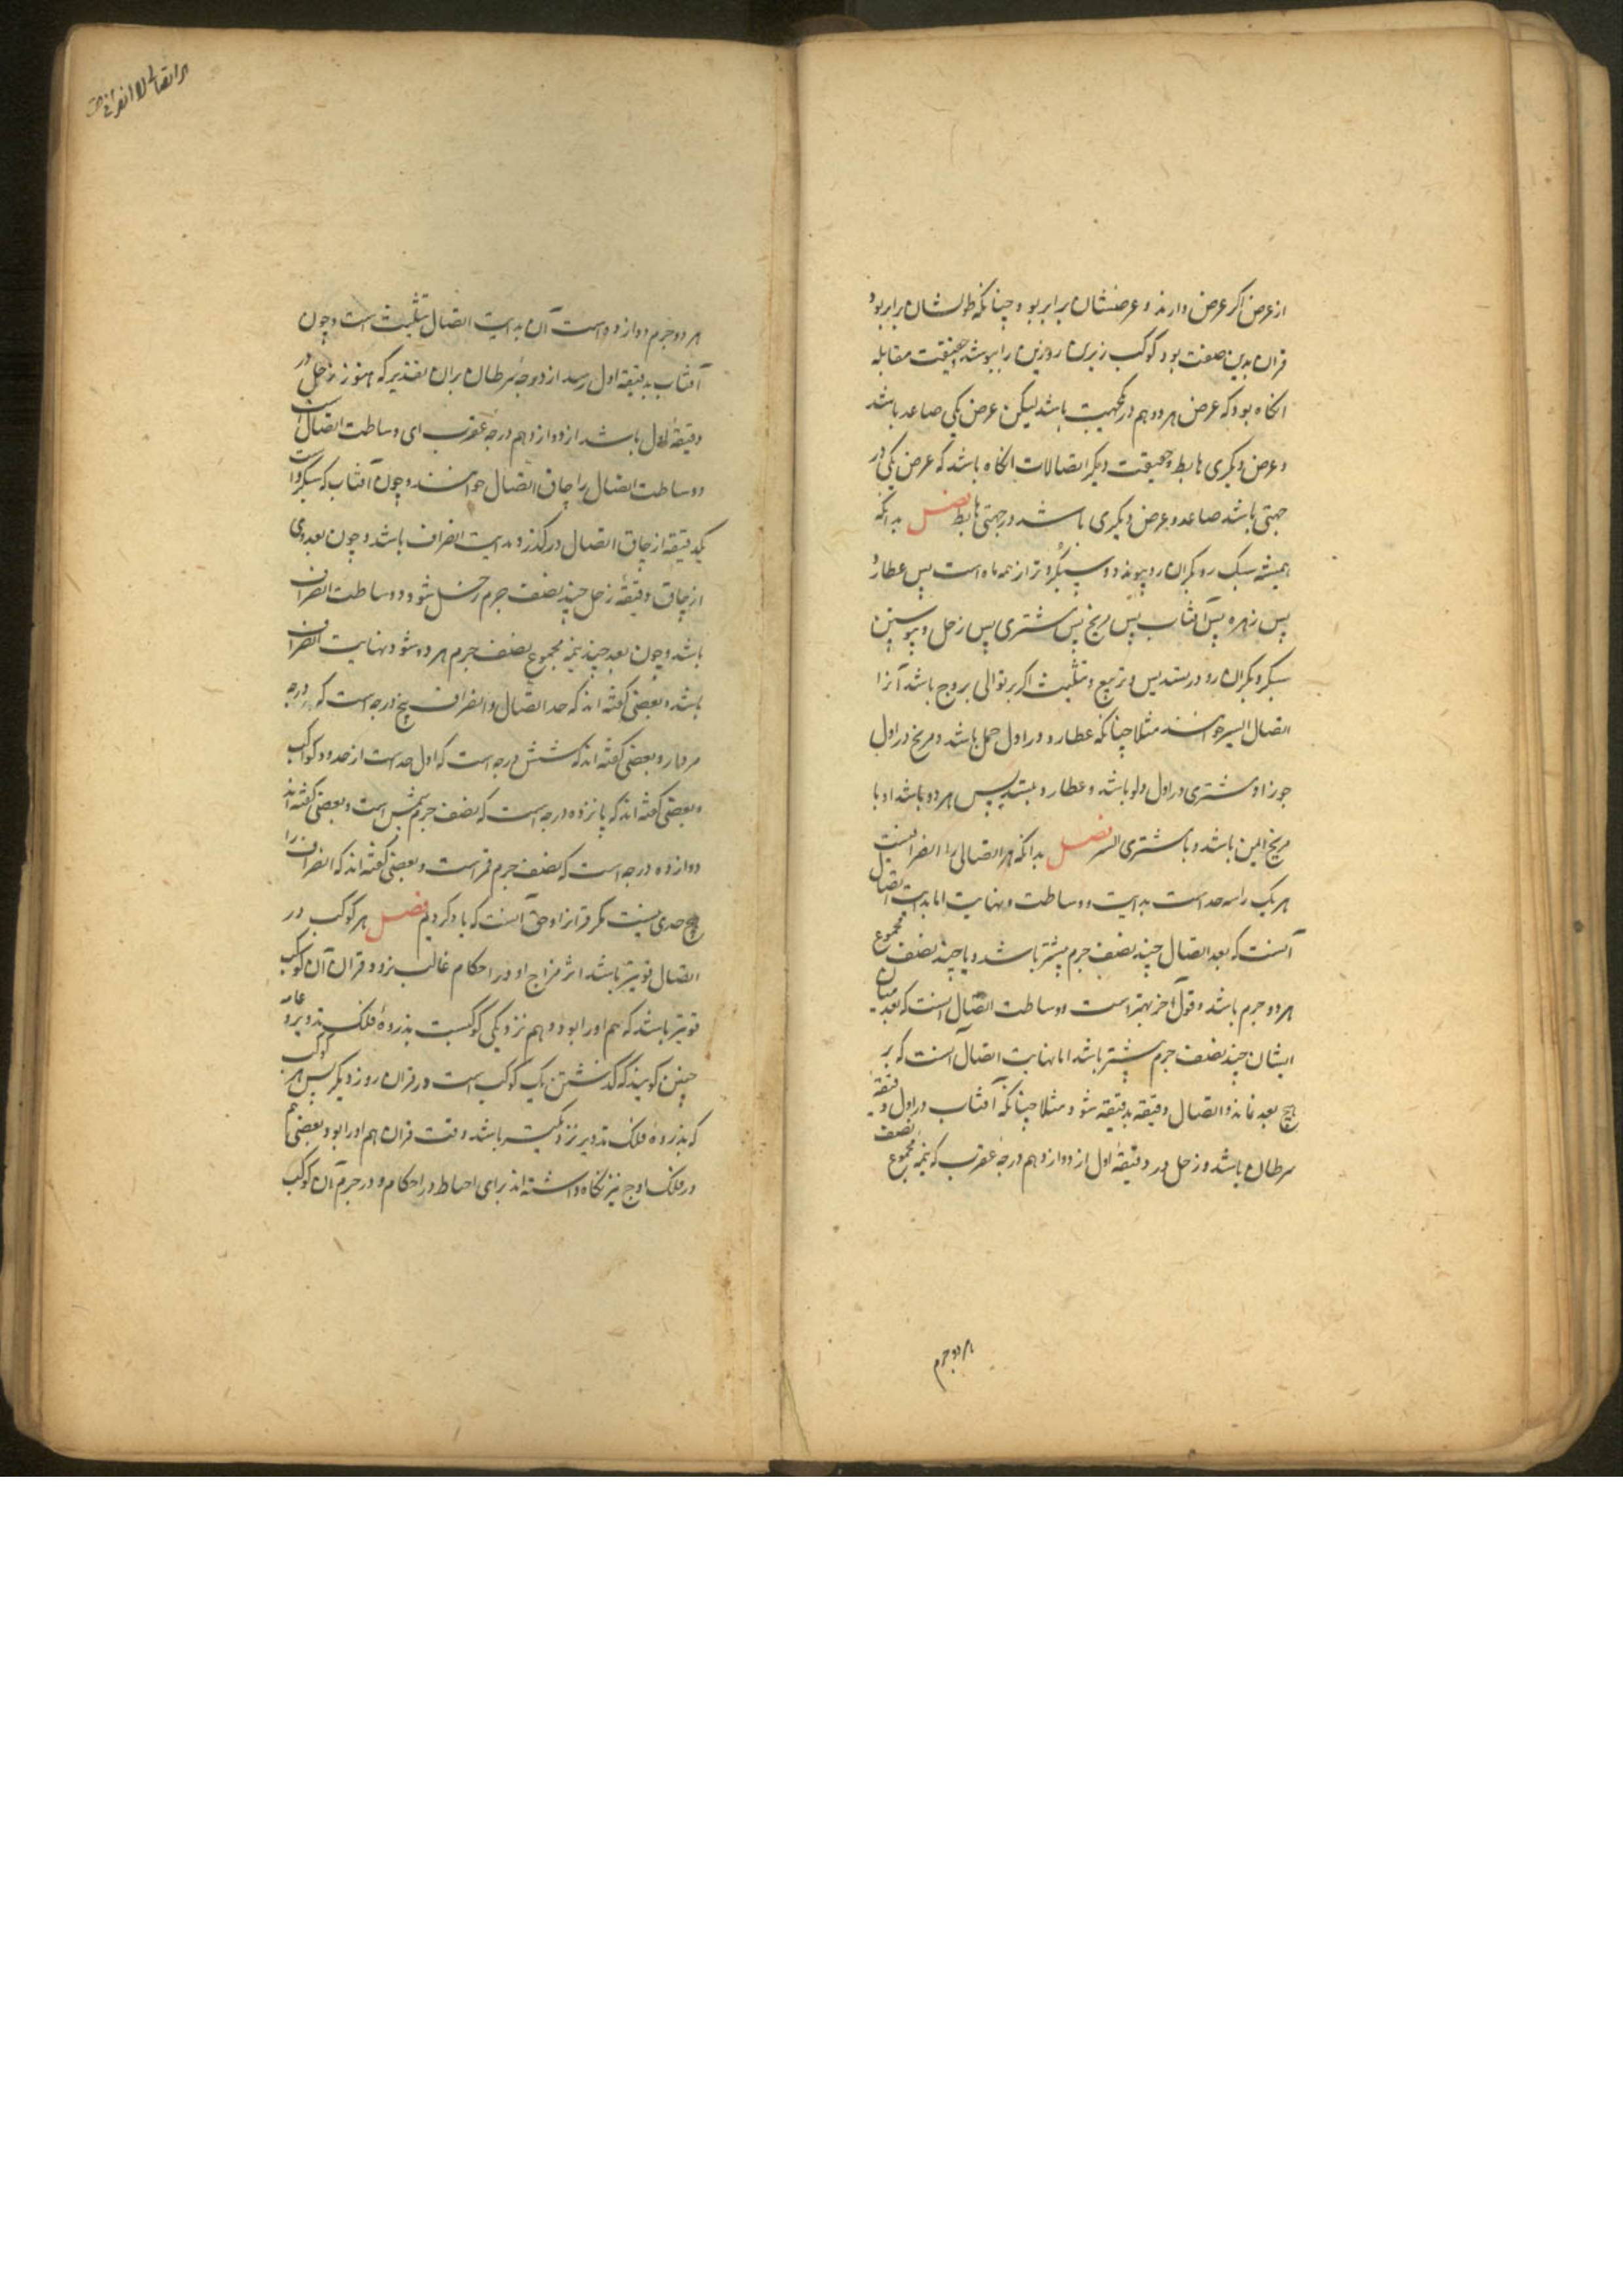 از عرض اگر عرض دارند و عرضشان برابر بود چنانکه طولشان برابر بود
قران بدین صفت بود کوکب زیرین زورین را بپوشد و حقیقت مقابله
آنکاه بود که عرض هر دو هم در یکجهت باشد لیکن عرض یکی صاعد باشد
و عرض دیکری هابط و حقیقت دیکر اتصالات آنکاه باشد که عرض یکی در
جهتی باشد صاعد و عرض دیکری باشد در جهتی هابط فصل بدانکه
همیشه سبک رو بکران رو پیوندد و سبکروتر از همه ماه است پس عطارد
پس زهره پس آفتاب پس مریخ پس مشتری پس زحل و پیوستن
سبکرو بکران رو در تسدیس و تربیع و تثلیث اکر بر توالی بروج باشد آنرا
اتصال ایسر خوانند مثلا چنانکه عطارد در اول حمل باشد و مریخ در اول
جوزا و مشتری در اول دلو باشد و عطارد بتسدیس هر دو باشد او با
مریخ ایمن باشد و با مشتری ایسر فصل بدانکه هر اتصالی را انصرافیست
هر یک را سه حد است بدایت و وساطت و نهایت اما بدایت اتصال
آنست که بعد اتصال چند نصف جرم پیشتر باشد و یا چند نصف مجموع
هر دو جرم باشد و قول آخر بهتر است و وساطت اتصال آنست که بعد میان
ایشان چند نصف جرم پیشتر باشد اما نهایت اتصال آنست که بر
هیچ بعد نماند و اتصال دقیقه بدقیقه شود مثلا چنانکه آفتاب در اول دقیقه
سرطان باشد و زحل در دقیقه اول از دوازدهم درجه عقرب که نیمه مجموع نصف
هر دو جرم
هر اتصالی را انصرافیست
هر دو جرم دوازده است آن بدایت اتصال تثلیث است و چون
آفتاب بدقیقه اول رسد از دو درجه سرطان بران تقدیر که هنوز زحل در
دقیقه اول باشد از دوازدهم درجه عقرب ای وساطت اتصال است
و وساطت اتصال را چاق اتصال خوانند و چون آفتاب که سبکرو است
یکدقیقه از چاق اتصال در کذرد بدایت انصراف باشد و چون بعد وی
از چاق دقیقه زحل چند نصف جرم زحل شود و وساطت انصراف
باشد و چون بعد چند نیمه مجموع نصف جرم هر دو شود نهایت انصراف
باشد و بعضی کفته اند که حد اتصال و انصراف پنج درجه است که درجه
مردار و بعضی کفته اند که شش درجه است که اول حد است از حدود کواکب
و بعضی کفته اند که پانزده درجه است که نصف جرم شمس است و بعضی کفته اند
دوازده درجه است که نصف جرم قمر است و بعضی کفته اند که انصراف را
هیچ حدی نیست مکر قرانرا و حق آنست که یاد کردیم فصل هر کوکب در
اتصال قویتر باشد اثر مزاج او در احکام غالب بود و در قران آن کوکب
قویتر باشد که هم او را بود و هم نزدیکی کوکبست بذروه فلک تدویر و عامه
چنین کویند که کذشتن یک کوکب است در قران روز دیکر پس هر کوکب
که بذروه فلک تدویر نزدیکتر باشد وقت قران هم او را بود و بعضی هم
در فلک اوج نیز نکاه داشته اند برای احتیاط در احکام و در جرم آن کوکب